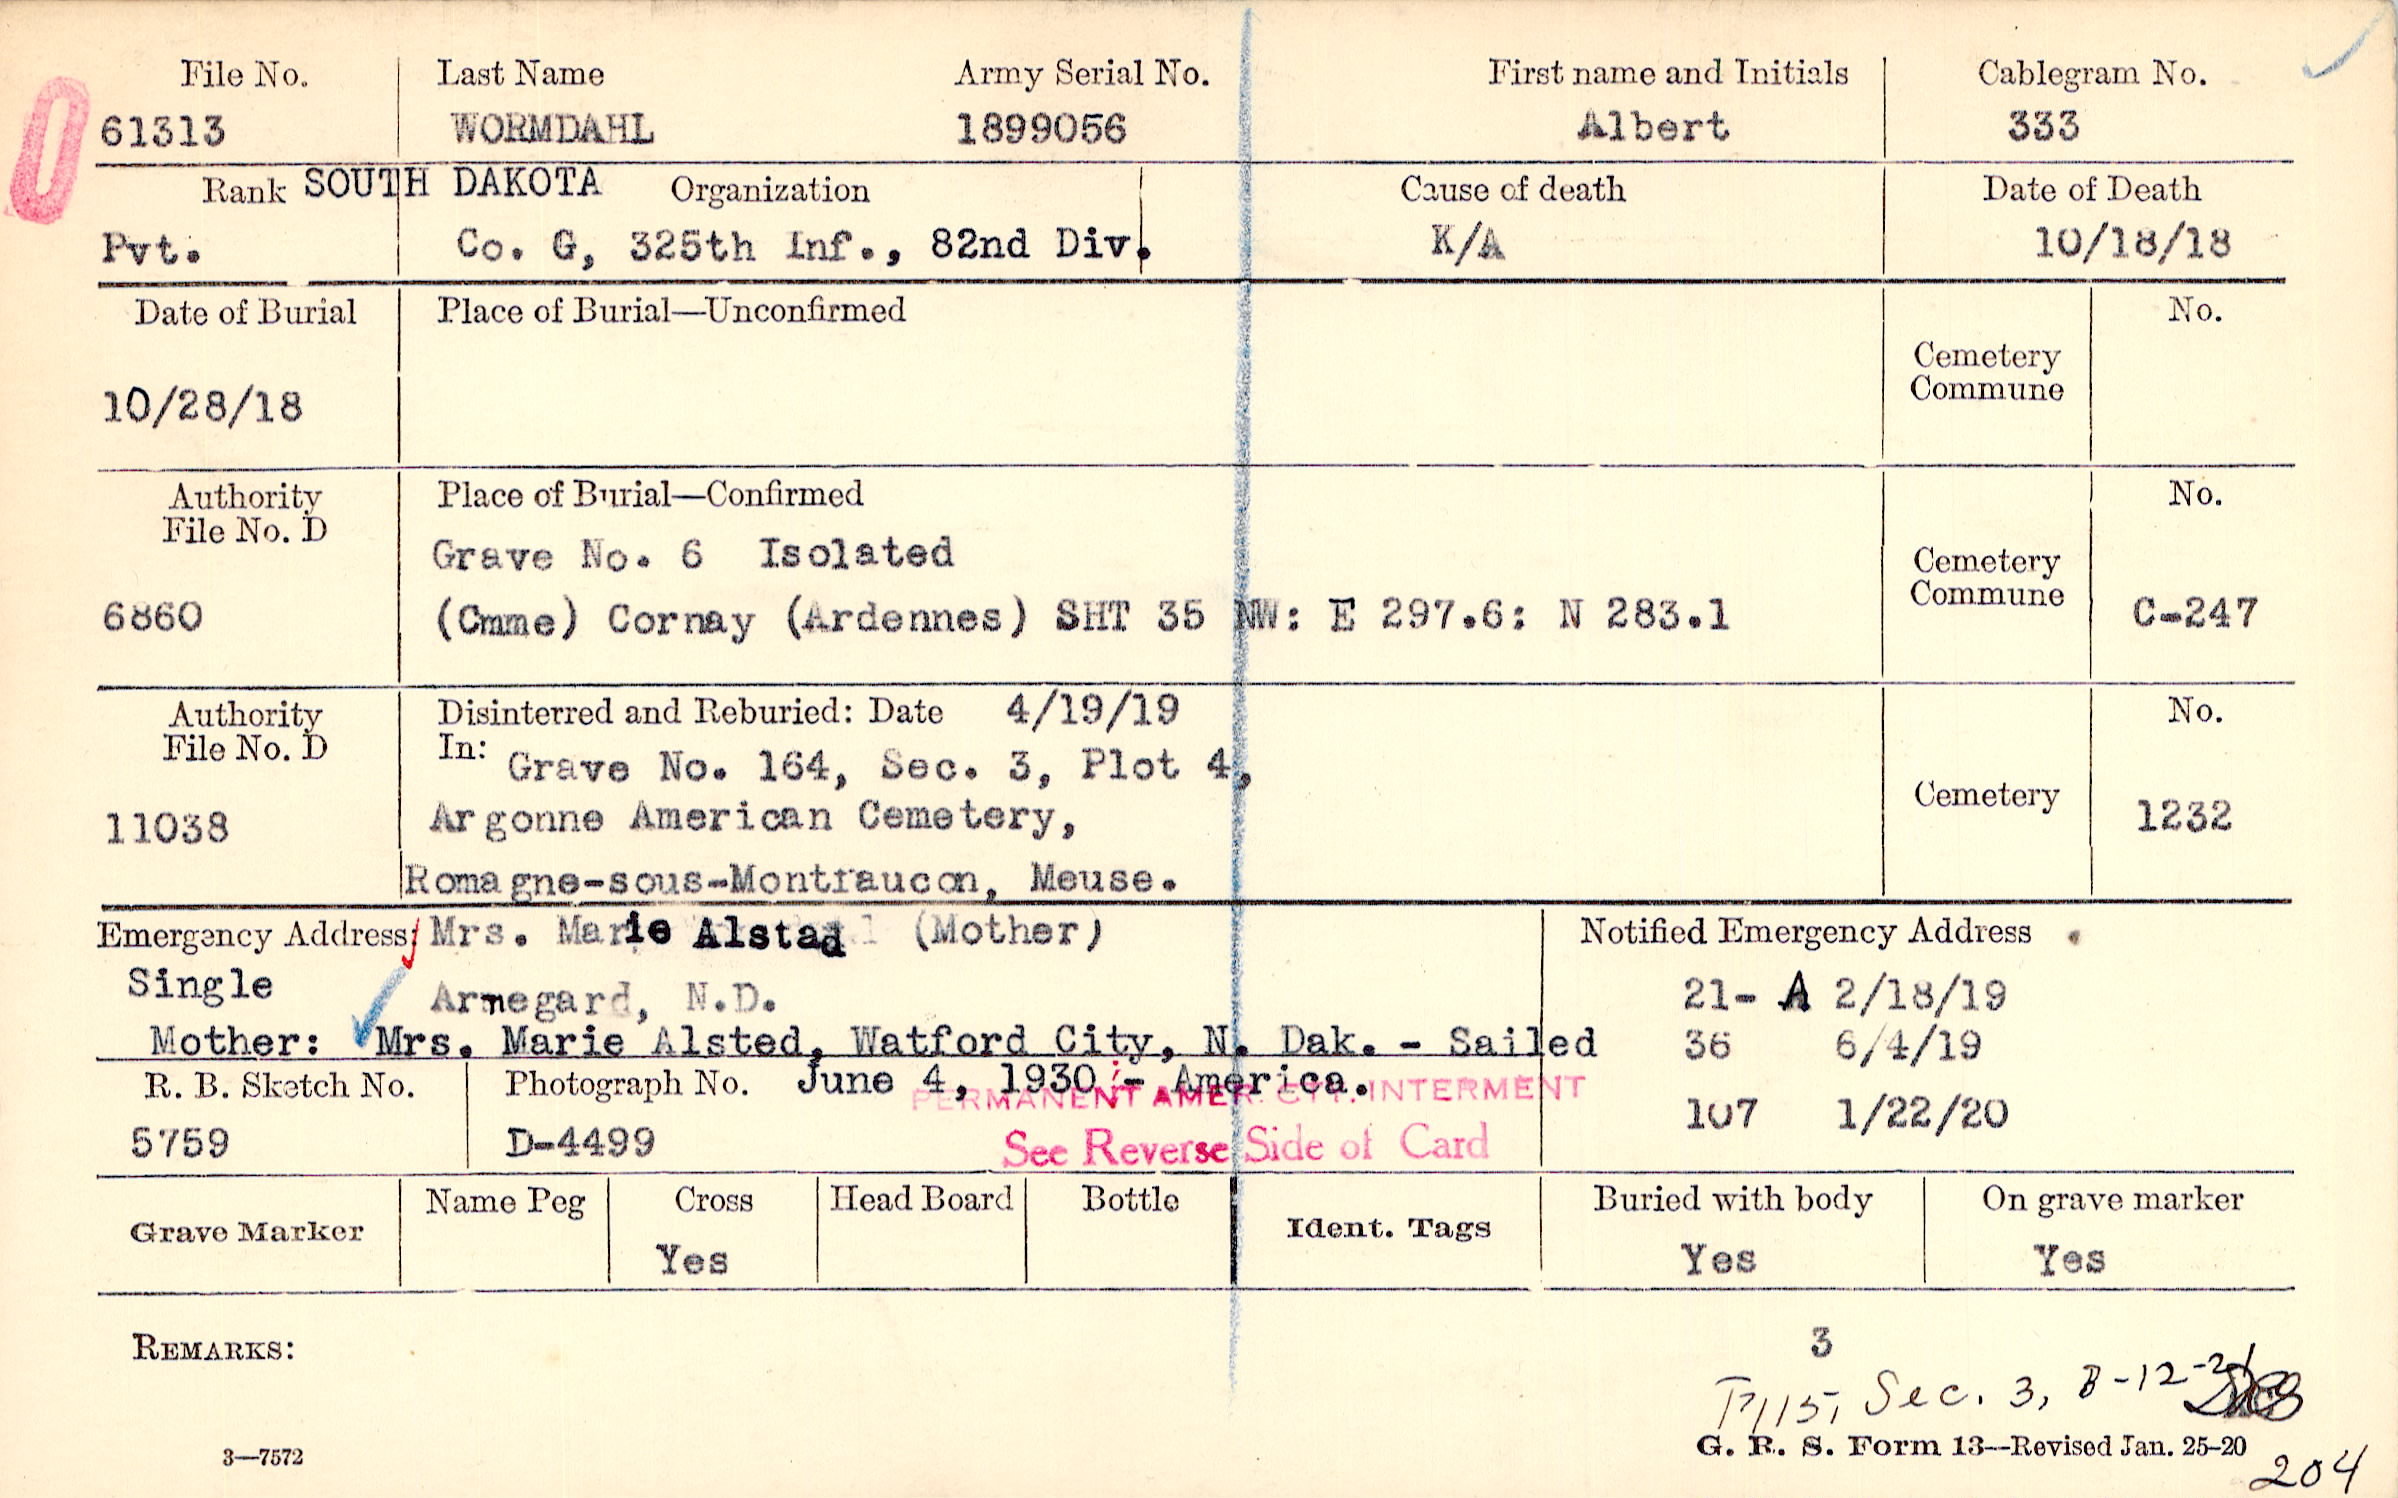 File No. Last Name Army Serial No. First name and Initials Cablegram No.
61313 WORMDAHL 1899056 Albert 333
Rank SOUTH DAKOTA Organization Cause of death Date of Death
Pvt. Co. G, 325th Inf., 82nd Div. K/A 10/18/18
Date of Burial Place of Burial—Unconfirmed No.
Cemetery
Commune
10/28/18
Authority Place of Burial—Confirmed No.
File No. D
Grave No. 6 Isolated Cemetery
Commune
6860 (Cmme) Cornay (Ardennes) SHT 35 NW: E 297.6: N 283.1 C-247
Authority Disinterred and Reburied: Date 4/19/19 No.
File No. D In: Grave No. 164, Sec. 3, Plot 4,
Cemetery
11038 Argonne American Cemetery, 1232
Romagne-sous-Montfaucon, Meuse.
Emergency Address: Mrs. Marie Alstad (Mother) Notified Emergency Address
Single Armegard, N.D. 21- A 2/18/19
Mother: Mrs. Marie Alsted, Watford City, N. Dak. - Sailed 36 6/4/19
R. B. Sketch No. Photograph No. June 4, 1930 - America.
PERMANENT AMER. CTY. INTERMENT
107 1/22/20
5759 D-4499 See Reverse Side of Card
Grave Marker Name Peg Cross Head Board Bottle Ident. Tags Buried with body On grave marker
Yes Yes Yes
REMARKS:
3
Sec. 3,
3—7572 G. R. S. Form 13—Revised Jan. 25-20
204